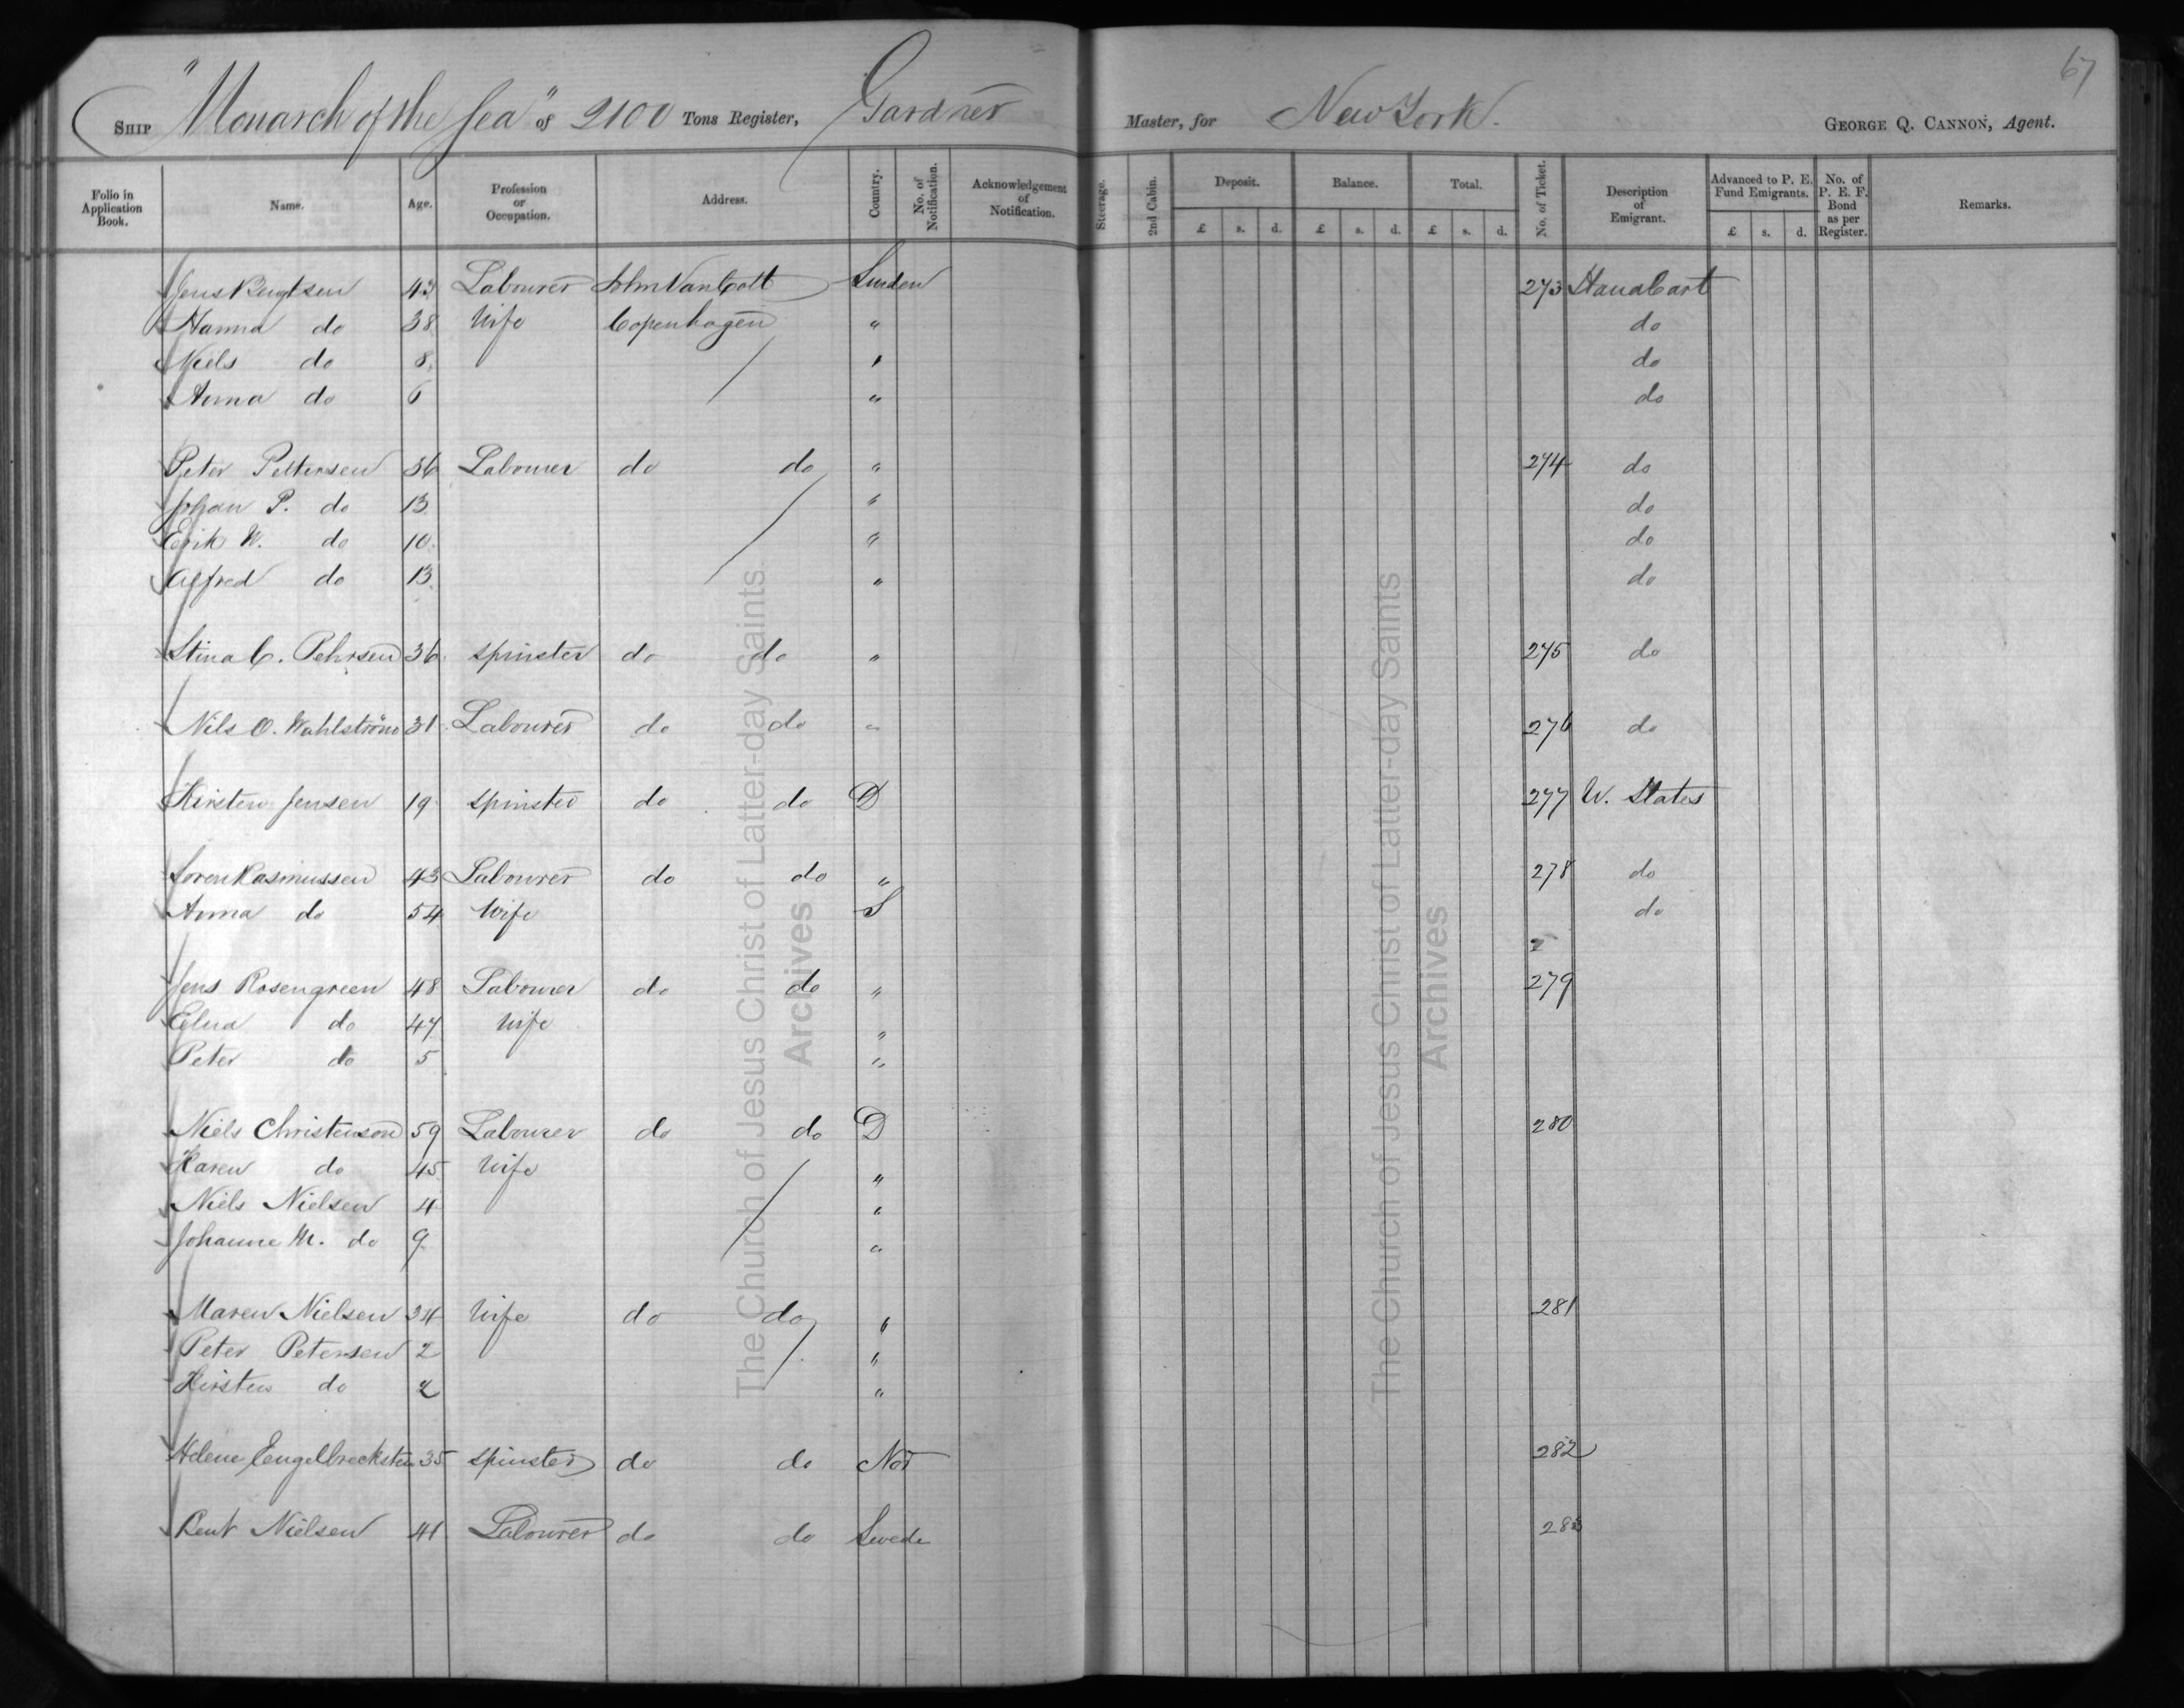 67
SHIP "Monarch of the Sea" of 2100 Tons Register, Gardner Master, for New York. GEORGE Q. CANNON, Agent.
Folio in Application Book. Name. Age. Profession or Occupation. Address. Country. No. of Notification. Acknowledgement of Notification. Steerage. 2nd Cabin. Deposit. £ s. d. Balance. £ s. d. Total. £ s. d. No. of Ticket. Description of Emigrant. Advanced to P. E. Fund Emigrants. £ s. d. No. of P. E. F. Bond as per Register. Remarks.
Jens Bengtsen 43 Labourer John Van Cott Sweden 273 Hand Cart
Hanna do 38 Wife Copenhagen " do
Niels do 8 " do
Anna do 6 " do
Peter Pettersen 36 Labourer do do " 274 do
Johan P. do 13 " do
Erik W. do 10 " do
Alfred do 13 " do
Stina C. Pehrsen 36 spinster do do " 275 do
Nils O. Wahlström 31 Labourer do do " 276 do
Kirsten Jensen 19 spinster do do D 277 U. States
Soren Rasmussen 43 Labourer do do " 278 do
Anna do 54 Wife S do
Jens Rosengreen 48 Labourer do do " 279
Elna do 47 Wife "
Peter do 5 "
Niels Christenson 59 Labourer do do D 280
Karen do 45 Wife "
Niels Nielsen 4 "
Johanne M. do 9 "
Maren Nielsen 34 Wife do do " 281
Peter Petersen 2 "
Kirsten do 2 "
Helene Engelbrecksten 35 spinster do do Nor 282
Bent Nielsen 41 Labourer do do Swede 283
The Church of Jesus Christ of Latter-day Saints
Archives
The Church of Jesus Christ of Latter-day Saints
Archives